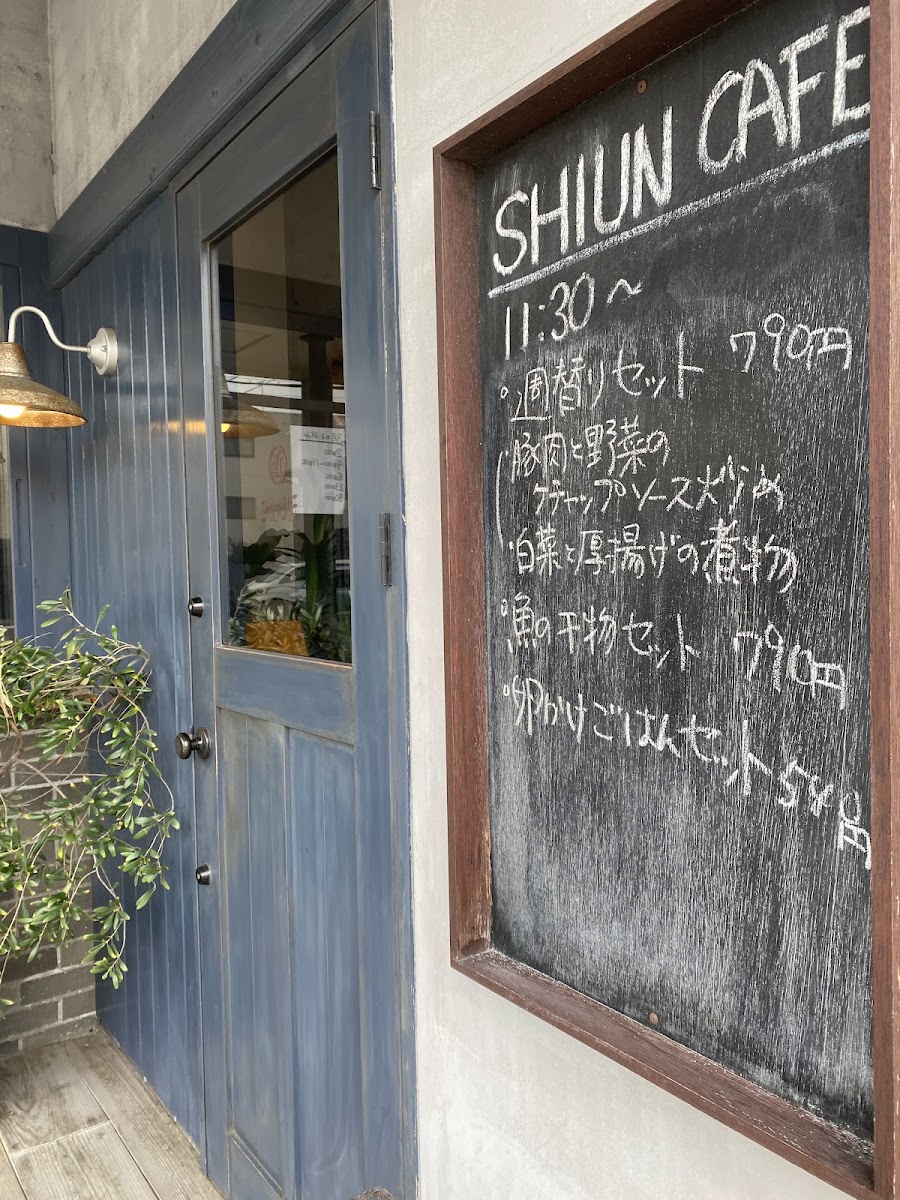 SHIUN CAFE
11:30～
○週替りセット 790円
豚肉と野菜の
ケチャップソース炒め
白菜と厚揚げの煮物
○魚の干物セット 790円
○卵かけごはんセット 540円